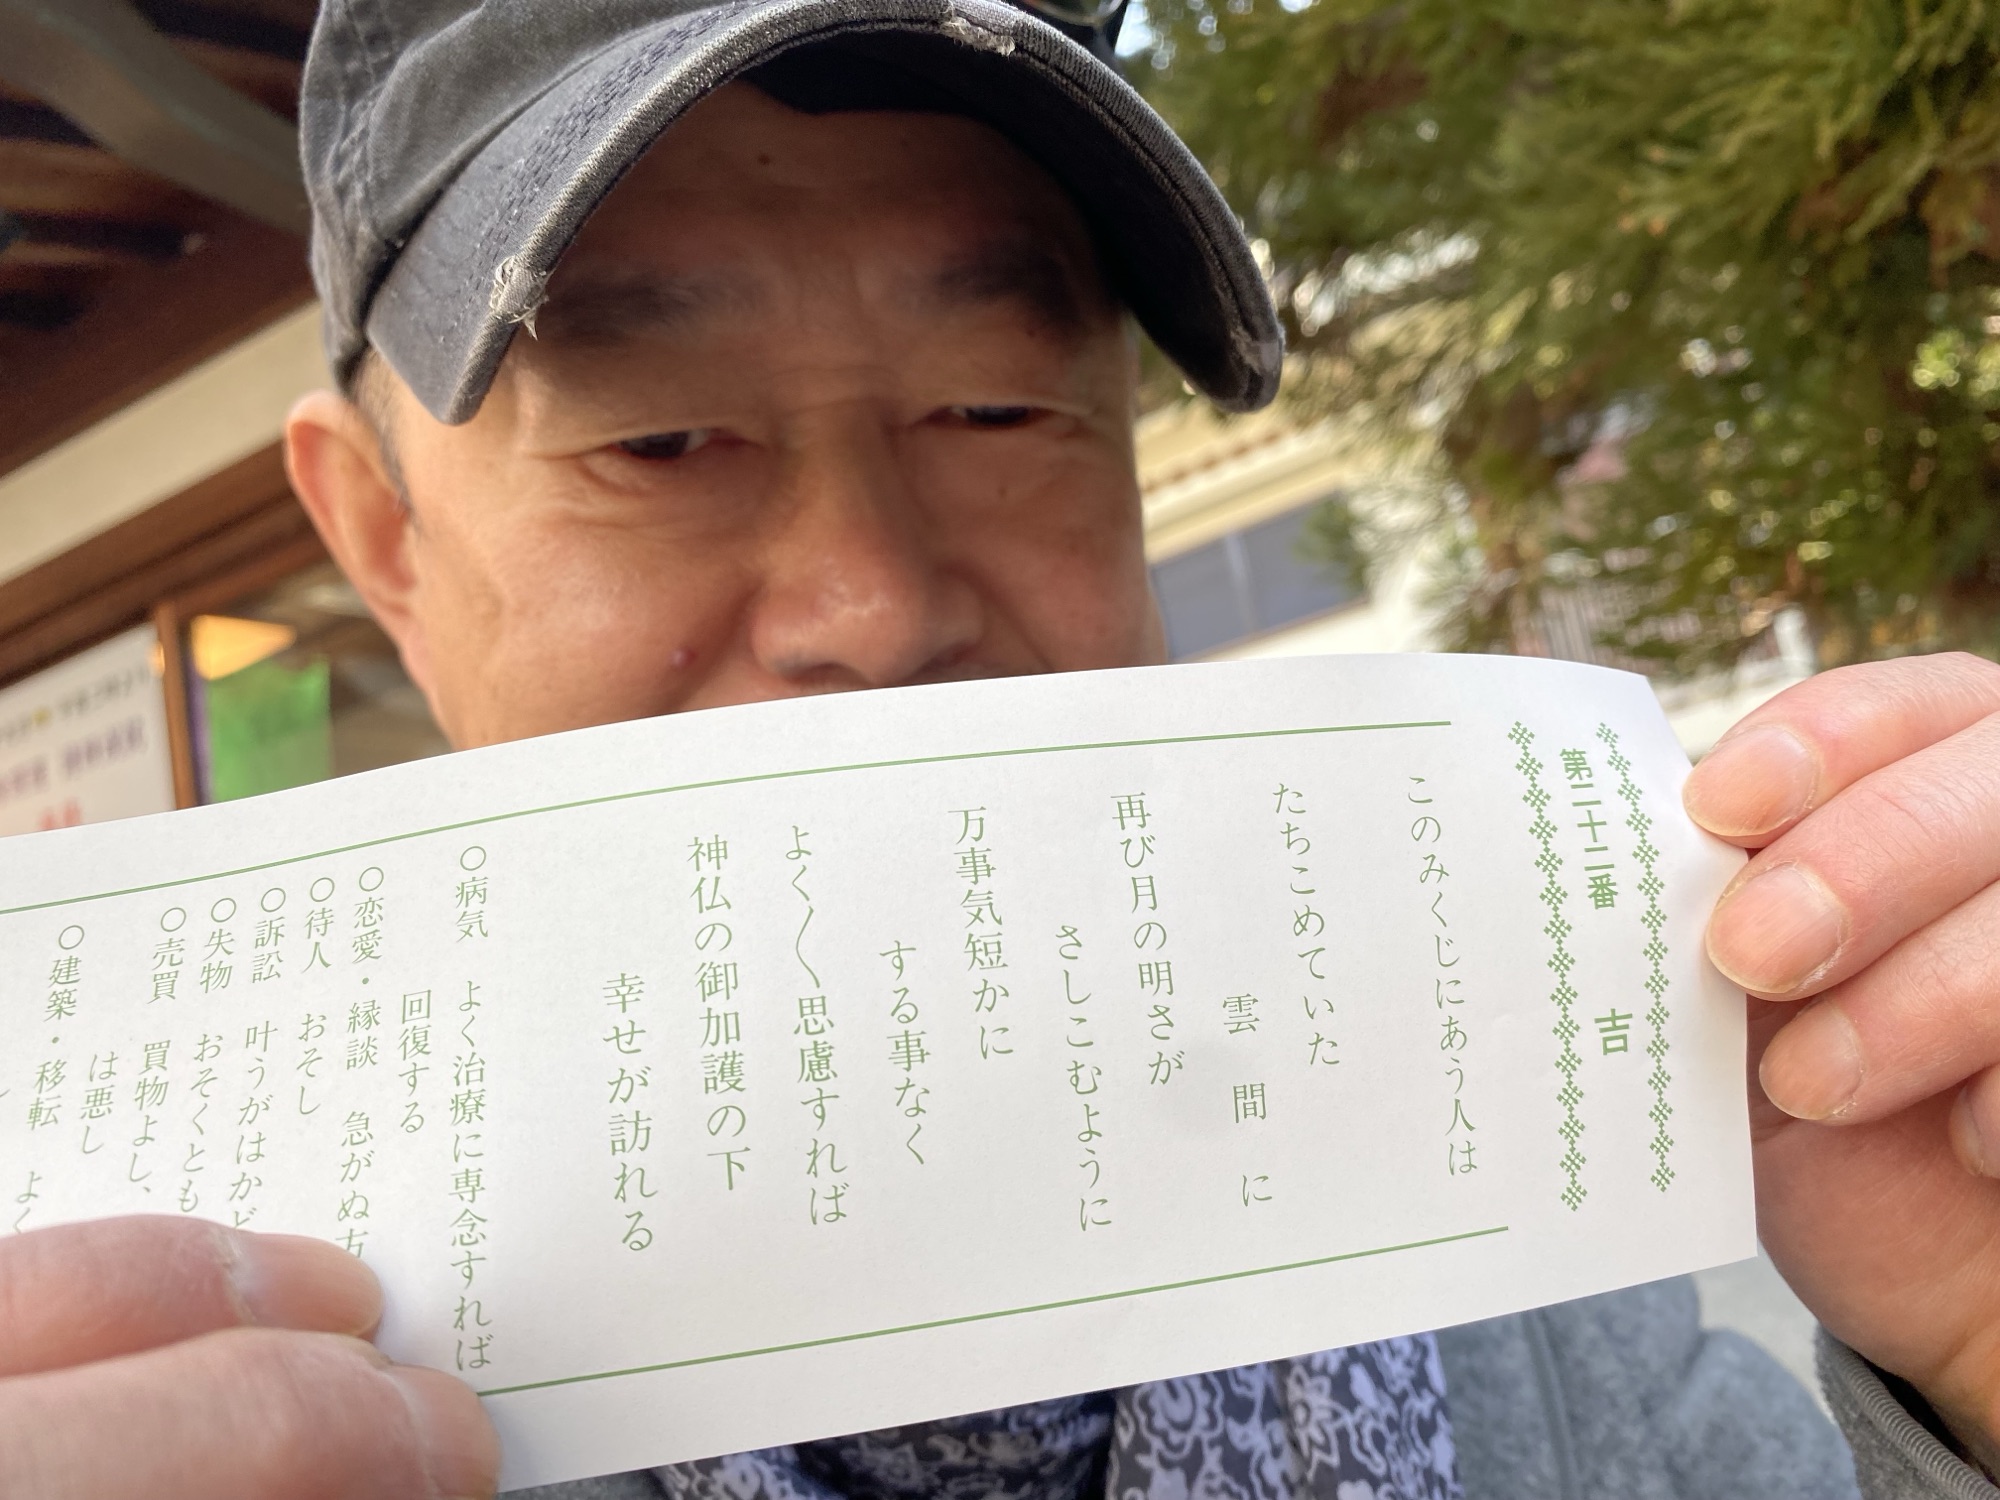 第二十二番　吉
このみくじにあう人は
たちこめていた
雲間に
再び月の明さが
さしこむように
万事気短かに
する事なく
よく〱思慮すれば
神仏の御加護の下
幸せが訪れる
○病気　よく治療に専念すれば
回復する
○恋愛・縁談　急がぬ方
○待人　おそし
○訴訟　叶うがはかど
○失物　おそくとも
○売買　買物よし、
は悪し
○建築・移転　よく